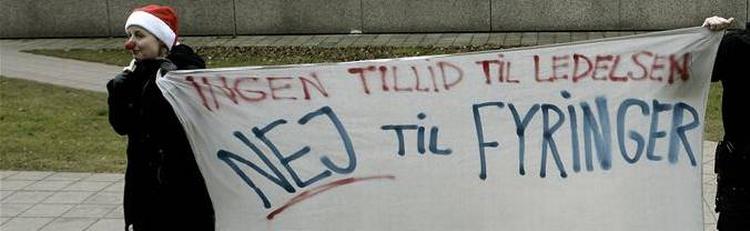 INGEN TILLID TIL LEDELSEN
NEJ TIL FYRINGER